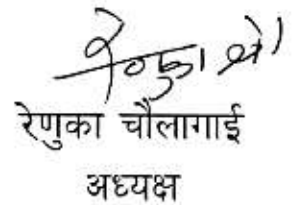 रेणुका चौलागाई
अध्यक्ष